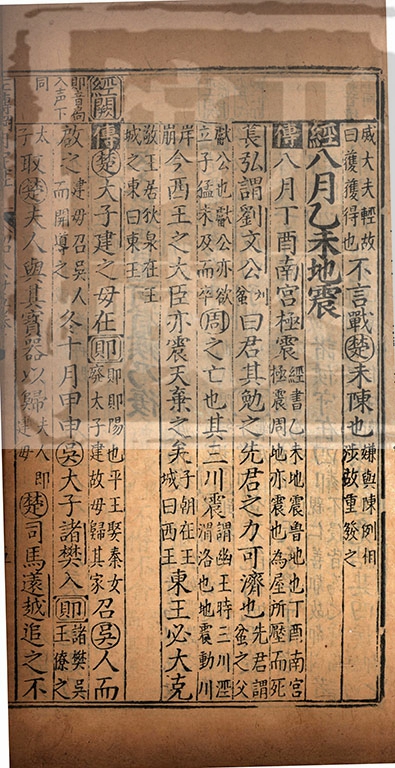 威大夫輕故曰獲獲得也不言戰楚未陳也嫌與陳例相涉故重發之
經八月乙未地震
傳八月丁酉南宮極震經書乙未地震魯地也丁酉南宮極震周地亦震也為屋所壓而死
萇弘謂劉文公刘蚠曰君其勉之先君之力可濟也先君謂蚠之父
獻公也獻公亦欲立子猛未及而卒周之亡也其三川震謂幽王時三川涇渭洛也地震動川
岸崩今西王之大臣亦震天棄之矣子朝在王城曰西王東王必大克
敬王居狄泉在王城之東曰東王
經闕傳楚大子建之母在郹郹郹陽也平王娶秦女廢太子建故母歸其家召吳人而
郹音尚入声下同
啟之建母召吳人而開導之冬十月甲申吳大子諸樊入郹諸樊吳王僚之
太子取楚夫人與其寶器以歸夫人即建母楚司馬薳越追之不